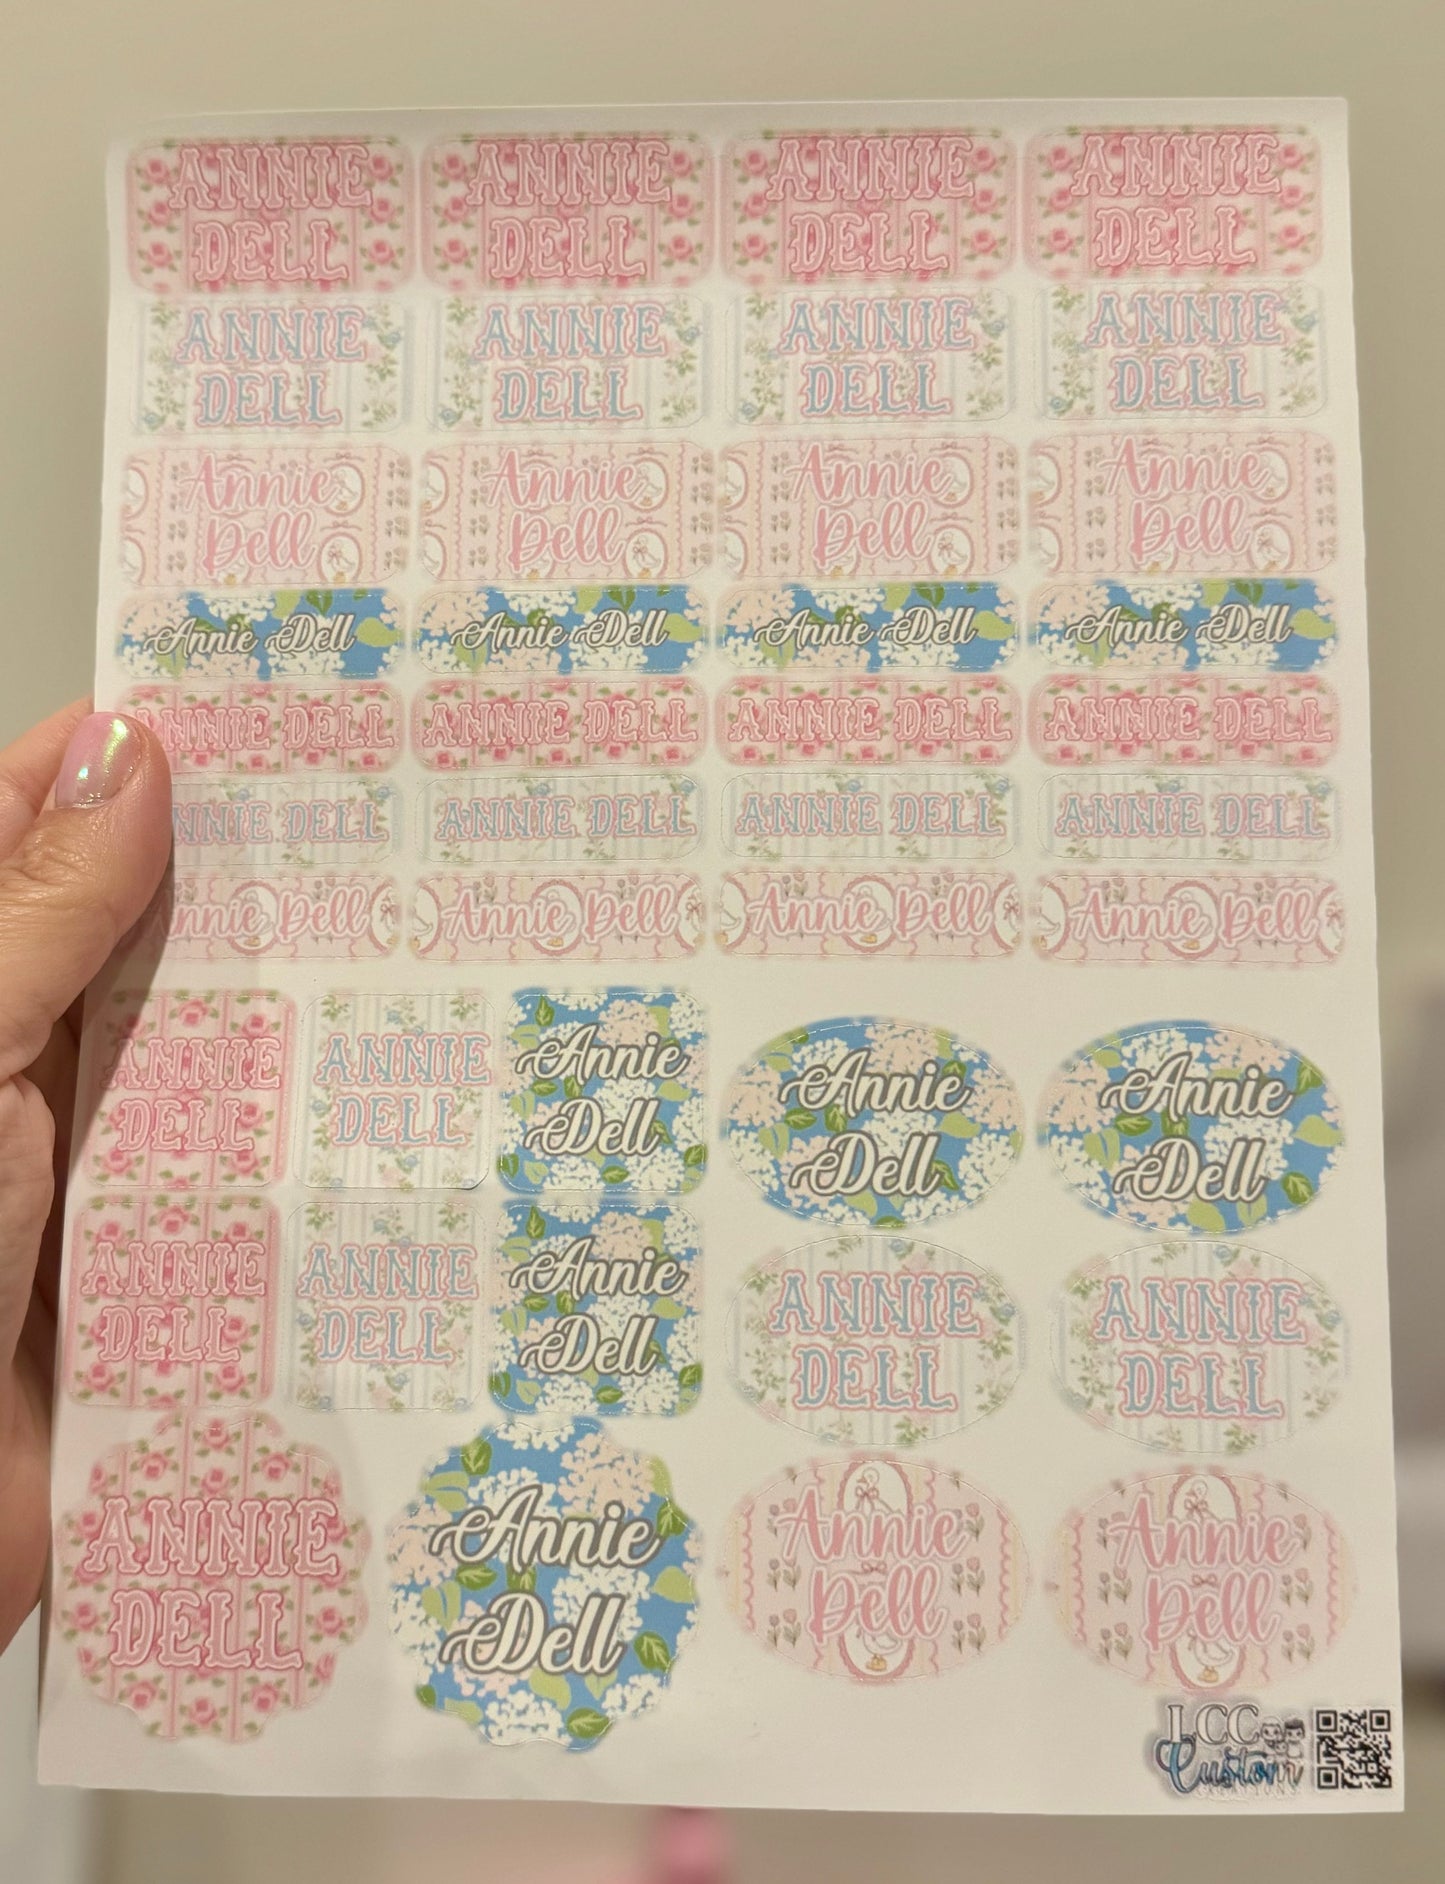 ANNIE
DELL
ANNIE
DELL
ANNIE
DELL
ANNIE
DELL
ANNIE
DELL
ANNIE
DELL
ANNIE
DELL
ANNIE
DELL
Annie
Dell
Annie
Dell
Annie
Dell
Annie
Dell
Annie Dell
Annie Dell
Annie Dell
Annie Dell
ANNIE DELL
ANNIE DELL
ANNIE DELL
ANNIE DELL
NNIE DELL
ANNIE DELL
ANNIE DELL
ANNIE DELL
nnie Dell
Annie Dell
Annie Dell
Annie Dell
ANNIE
DELL
ANNIE
DELL
Annie
Dell
Annie
Dell
Annie
Dell
ANNIE
DELL
ANNIE
DELL
Annie
Dell
ANNIE
DELL
ANNIE
DELL
ANNIE
DELL
Annie
Dell
Annie
Dell
Annie
Dell
LCC
Custom
CREATIONS